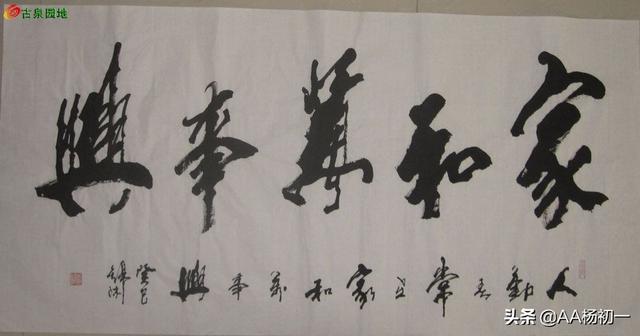 古泉园地
家和萬事興
人勤春常在家和萬事興
癸巳
头条 @AA杨初一